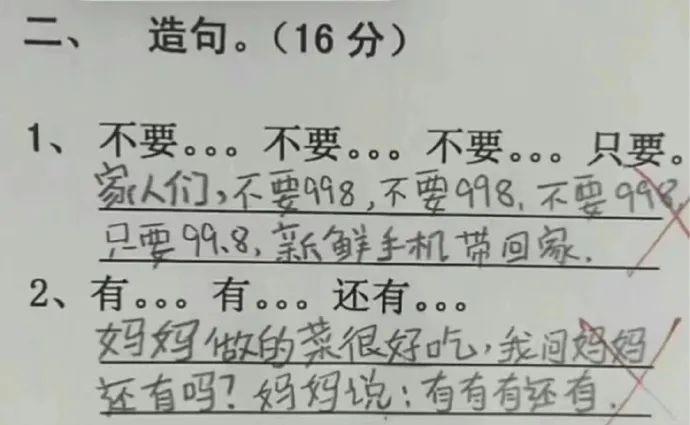 二、 造句。（16 分）
1、 不要。。。不要。。。不要。。。只要。
家人们，不要998，不要998，不要998，
只要99.8，新鲜手机带回家.
2、有。。。有。。。还有。。。
妈妈做的菜很好吃，我问妈妈
还有吗？妈妈说：有有有还有.